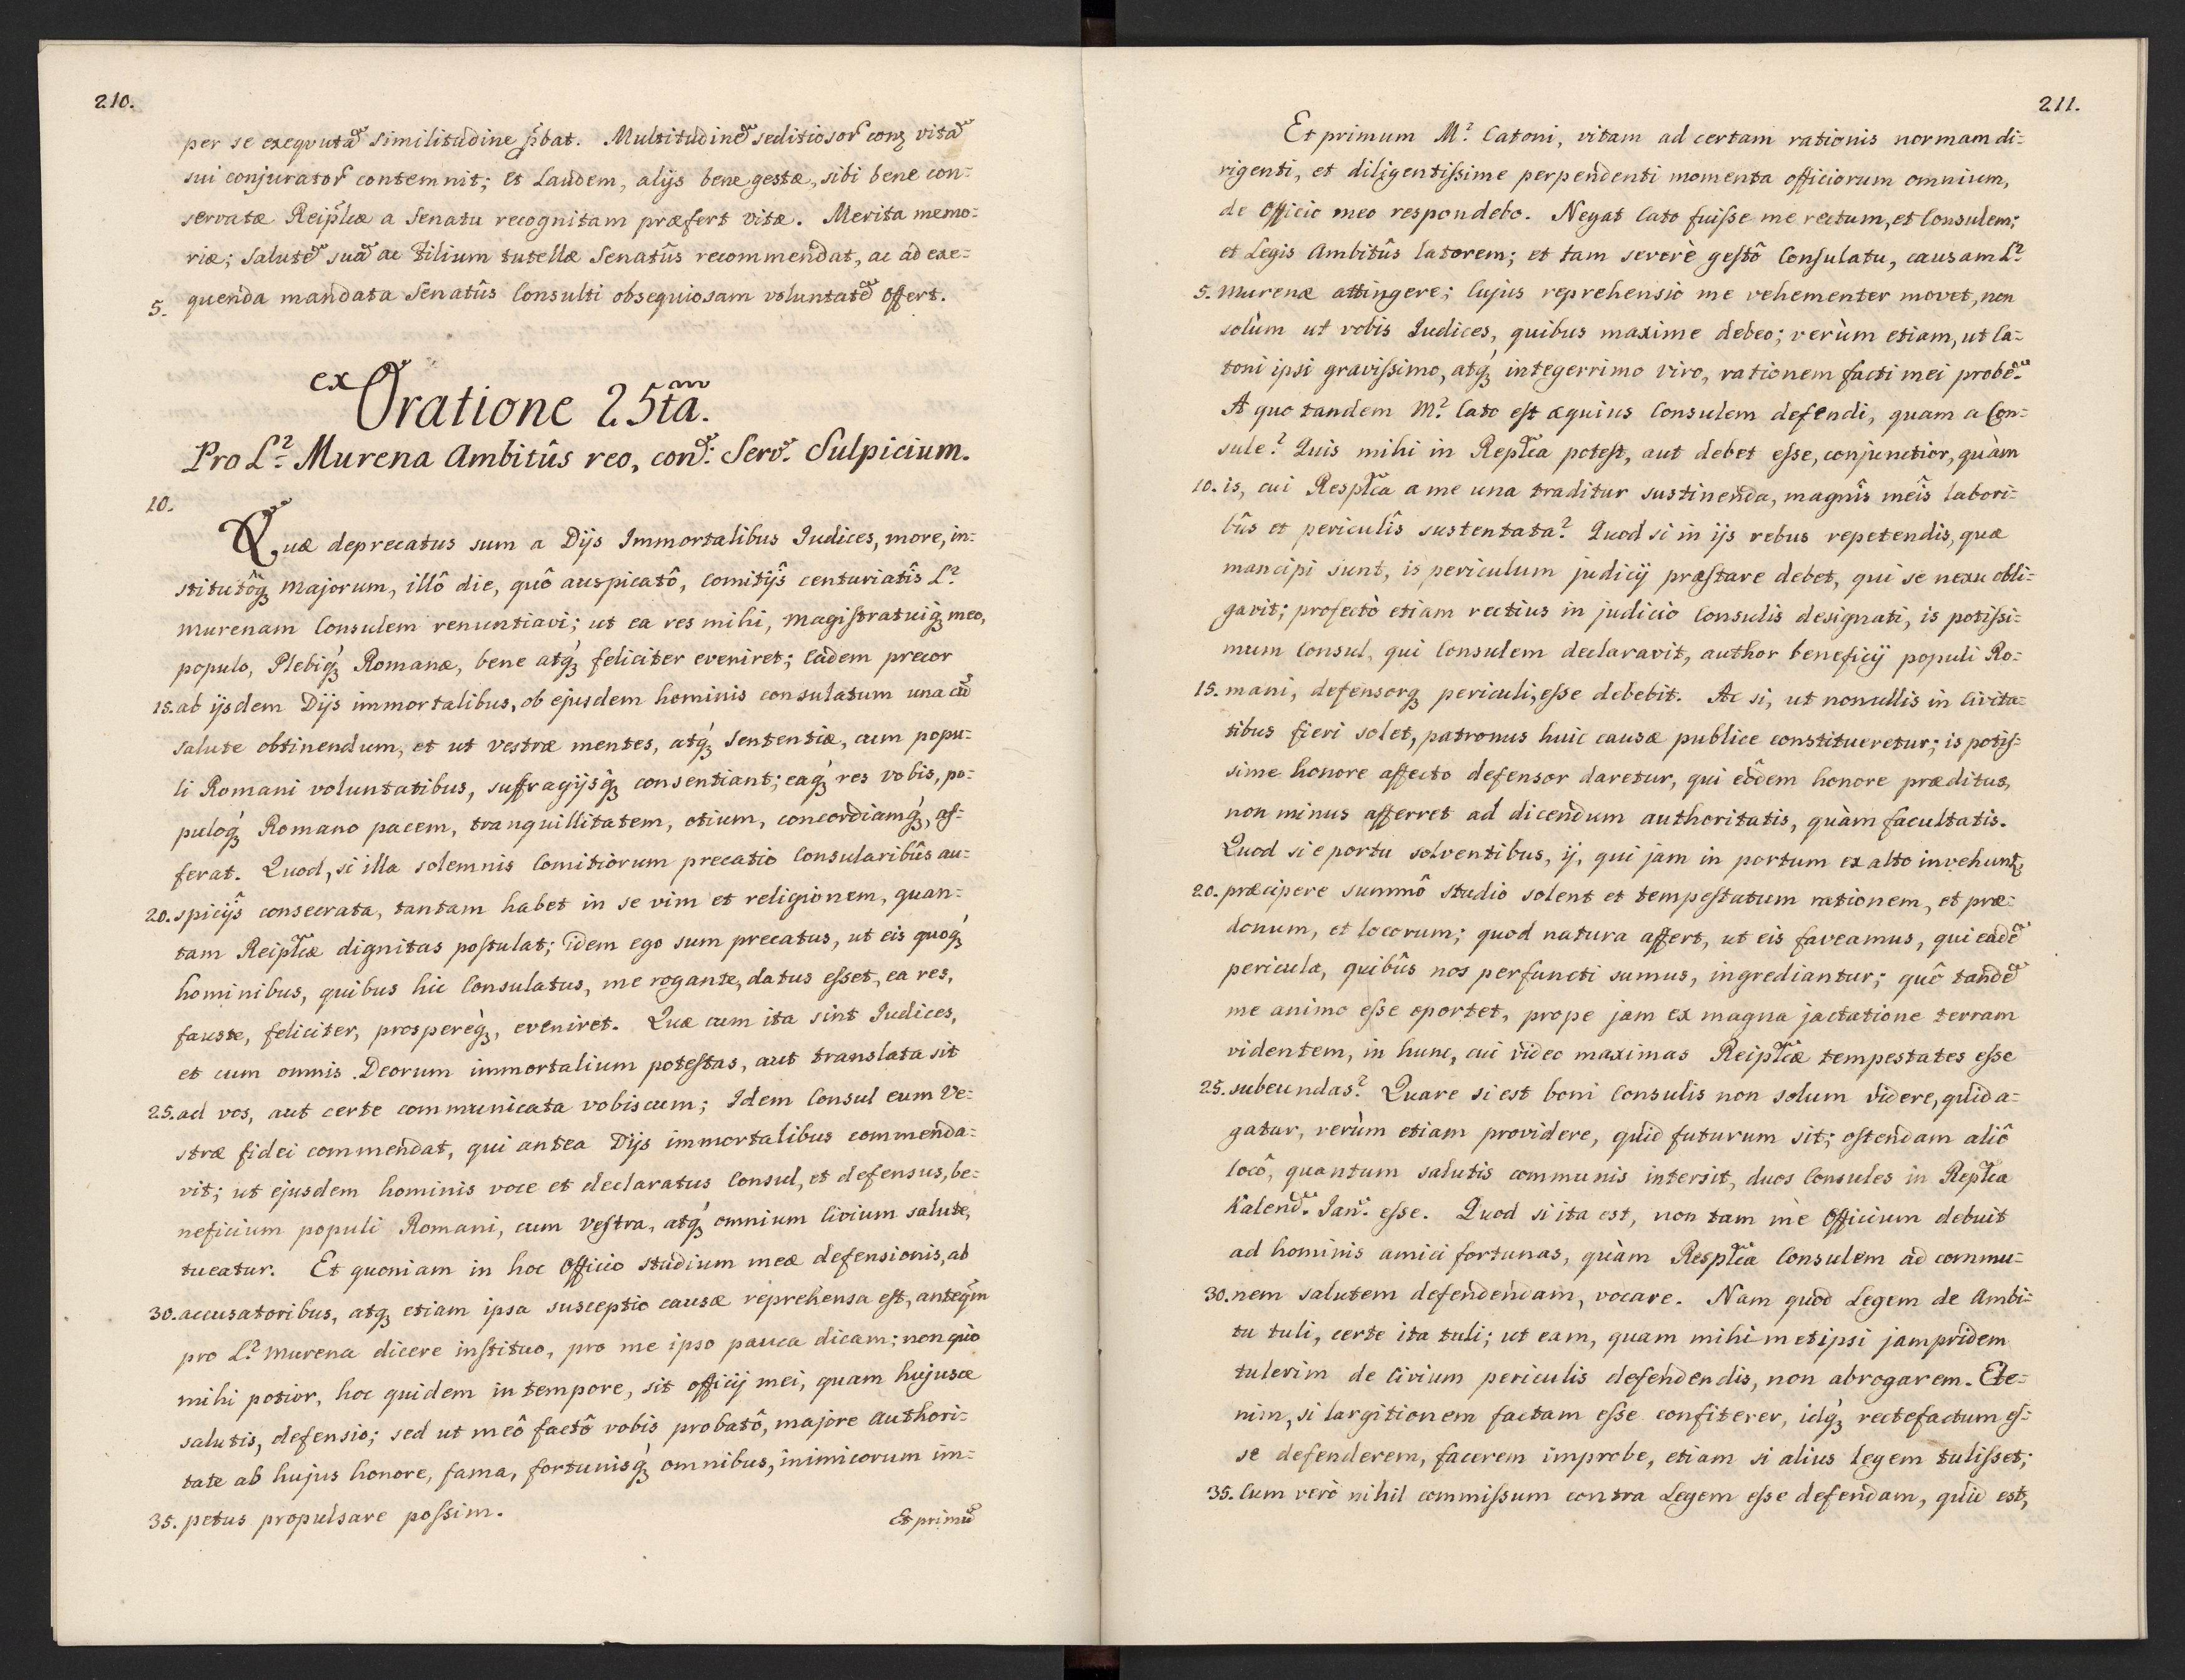 210.
per se exeqvutã similitudine p̃bat. Multitudinẽ seditiosor̃ conꝫ vitã
sui conjurator̃ contemnit; et Laudem, alijs bene gestæ, sibi bene con=
servatæ Reip̃lcæ a Senatu recognitam præfert vitæ. Merita memo=
riæ; salutẽ suã ac Filium tutellæ Senatûs recommendat, ac ad exe=
5. quenda mandata Senatûs Consulti obsequiosam voluntatẽ offert.
ex Oratione 25tam.
Pro L? Murena Ambitûs reo, con̄: Serv̄. Sulpicium.
10.
Quæ deprecatus sum a Dijs Immortalibus Iudices, more, in=
stitutôq́ꝫ Majorum, illô die, quô auspicatô, Comitijs̑ centuriatîs L?
Murenam Consulem renuntiavi; ut ea res mihi, Magistratuiq́ꝫ meo,
populo, Plebiq́ꝫ Romanæ, bene atq́ꝫ feliciter eveniret; Eadem precor
15. ab ijsdem Dijs immortalibus, ob ejusdem hominis consulatum una cũ
salute obtinendum, et ut vestræ mentes, atq́ꝫ Sententiæ, cum popu=
li Romani voluntatibus, suffragijsq́ꝫ consentiant; eaq́ꝫ res vobis, po=
puloq́ꝫ Romano pacem, tranquillitatem, otium, concordiamq́ꝫ, af=
ferat. Quod, si illa solemnis Comitiorum precatio Consularibûs au=
20. spicijs̑ consecrata, tantam habet in se vim et religionem, quan=
tam Reip̃lcæ dignitas postulat; idem ego sum precatus, ut eis quoq́ꝫ
hominibus, quibus hic Consulatus, me rogante, datus esset, ea res,
fauste, feliciter, prospereq́ꝫ, eveniret. Quæ cum ita sint Iudices,
et cum omnis Deorum immortalium potestas, aut translata sit
25. ad vos, aut certe communicata vobiscum; Idem Consul eum Ve=
stræ fidei commendat, qui antea Dijs immortalibus commenda=
vit; ut ejusdem hominis voce et declaratus Consul, et defensus, be=
neficium populi Romani, cum Vestra, atq́ꝫ omnium Civium salute,
tueatur. Et quoniam in hoc Officio studium meæ defensionis, ab
30. accusatoribus, atqꝫ etiam ipsa susceptio causæ reprehensa est, anteq̃m
pro L? Murena dicere instituo, pro me ipso pauca dicam; non quò
mihi potior, hoc quidem in tempore, sit officij mei, quam hujusce
salutis, defensio; sed ut meô factô vobis probatô, majore Authori=
tate ab hujus honore, fama, fortunisq́ꝫ omnibus, inimicorum im=
35. petus propulsare possim.
Et primũ
211.
Et primum M? Catoni, vitam ad certam rationis normam di=
rigenti, et diligentissime perpendenti momenta officiorum omnium,
de Officio meo respondebo. Negat Cato fuisse me rectum, et Consulem;
et Legis Ambitûs latorem; et tam severè gestô Consulatu, causam L?
5. Murenæ attingere; Cujus reprehensio me vehementer movet, non
solùm ut vobis Iudices, quibus maxime debeo; verùm etiam, ut Ca=
toni ipsi gravissimo, atq́ꝫ integerrimo viro, rationem facti mei probẽ.
A quo tandem M? Cato est æquius Consulem defendi, quam a Con=
sule? Quis mihi in Rep̃lca potest, aut debet esse, conjunctior, quàm
10. is, cui Resp̃lca a me una traditur sustinenda, magnîs meîs labori=
bûs et periculîs sustentata? Quod si in ijs rebus repetendis, quæ
mancipi sunt, is periculum judicij præstare debet, qui se nexu obli=
gavit; profectò etiam rectius in judicio Consulis designati, is potissi=
mum Consul, qui Consulem declaravit, author beneficij populi Ro=
15. mani, defensorqꝫ periculi, esse debebit. Ac si, ut nonullis in Civita=
tibus fieri solet, patronus huic causæ publice constitueretur; is potis=
sime honore affecto defensor daretur, qui eôdem honore præditus,
non minus afferret ad dicendum authoritatis, quàm facultatis.
Quod si e portu solventibus, ij, qui jam in portum ex alto invehuntꝫ,
20. præcipere summô studio solent et tempestatum rationem, et præ=
donum, et locorum; quod natura affert, ut eis faveamus, qui eadẽ
pericula, quibûs nos perfuncti sumus, ingrediantur; quô tandẽ
me animo esse oportet, prope jam ex magna jactatione terram
videntem, in hunc, cui video maximas Reip̃lcæ tempestates esse
25. subeundas? Quare si est boni Consulis non solum videre, quid a=
gatur, verùm etiam providere, quid futurum sit; ostendam aliô
locô, quantum salutis communis intersit, duos Consules in Rep̃lca
Kalend̄. Ian̄. esse. Quod si ita est, non tam mè Officium debuit
ad hominis amici fortunas, quàm Resp̃lca Consulem ad commu=
30. nem salutem defendendam, vocare. Nam quod Legem de Ambi=
tu tuli, certe ita tuli; ut eam, quam mihimetipsi jampridem
tulerim de Civium periculis defendendis, non abrogarem. Ete=
nim, si largitionem factam esse confiterer, idq́ꝫ recte factum es=
se defenderem, facerem improbe, etiam si alius legem tulisset;
35. Cum verò nihil commissum contra Legem esse defendam, quid est,